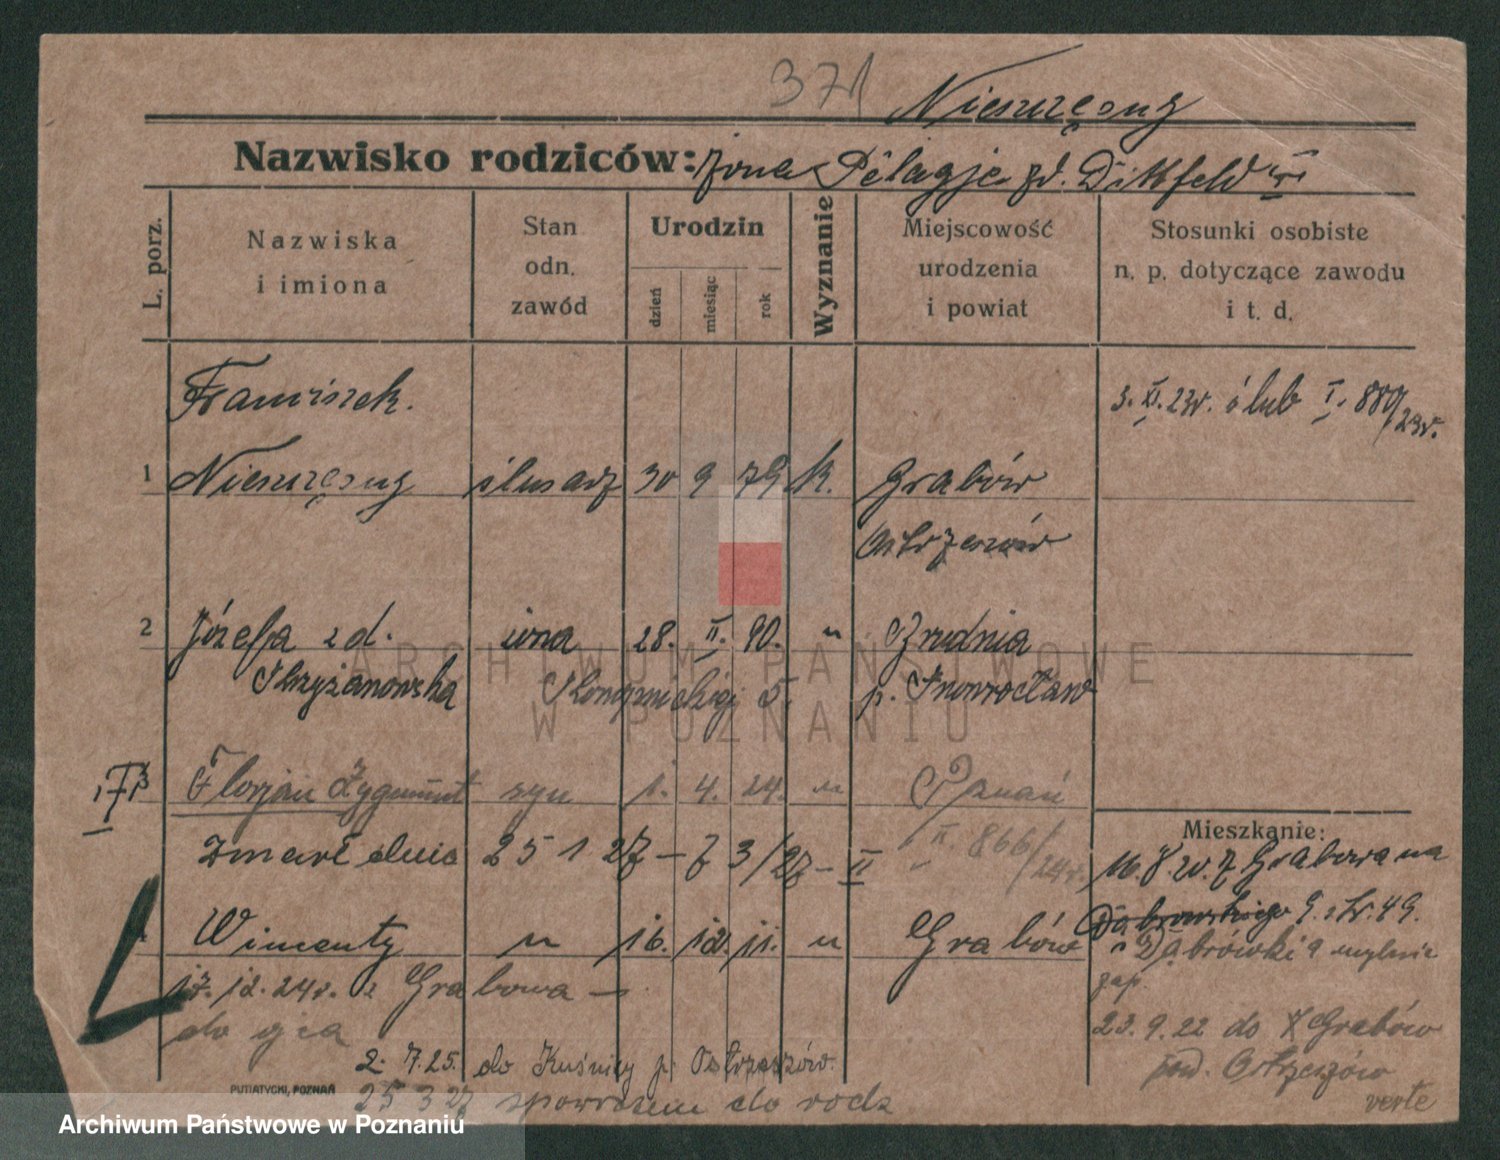 371
Nieszczęsny
Nazwisko rodziców: żona Pelagje zd. Dikfeld
L. porz.
Nazwiska i imiona
Stan odn. zawód
Urodzin
dzień miesiąc rok
Wyznanie
Miejscowość urodzenia i powiat
Stosunki osobiste n. p. dotyczące zawodu i t. d.
Franciszek. 3. XI. 23r. ślub I. 889/23r.
1 Nieszczęsny ślusarz 30 9 79 k. Grabów
Ostrzeszów
2 Józefa z d. żona 28. II. 90. " Zrudnia
Skrzyżanowska Konopnickiej 5. p. Inowrocław
3 Florjan Zygmunt syn 1. 4. 24. " Poznań
II. 866/24r.
zmarł dnia 25 1 27 – 73/27 – II
Mieszkanie:
16. 8. 20. z Grabowa na
Dąbrowskiego 9. z Kr. 49.
4 Wincenty " 16. 12. 11. " Grabów
Dąbrówki 9 mylnie
zap.
17. 12. 24r. z Grabowa –
do ojca
23. 9. 22 do Grabów
pow. Ostrzeszów
2. 7. 25. do Kuźnicy p. Ostrzeszów.
25 3 27 spowrotem do rodz
verte
PUTIATYCKI, POZNAŃ
ARCHIWUM PAŃSTWOWE
W POZNANIU
Archiwum Państwowe w Poznaniu